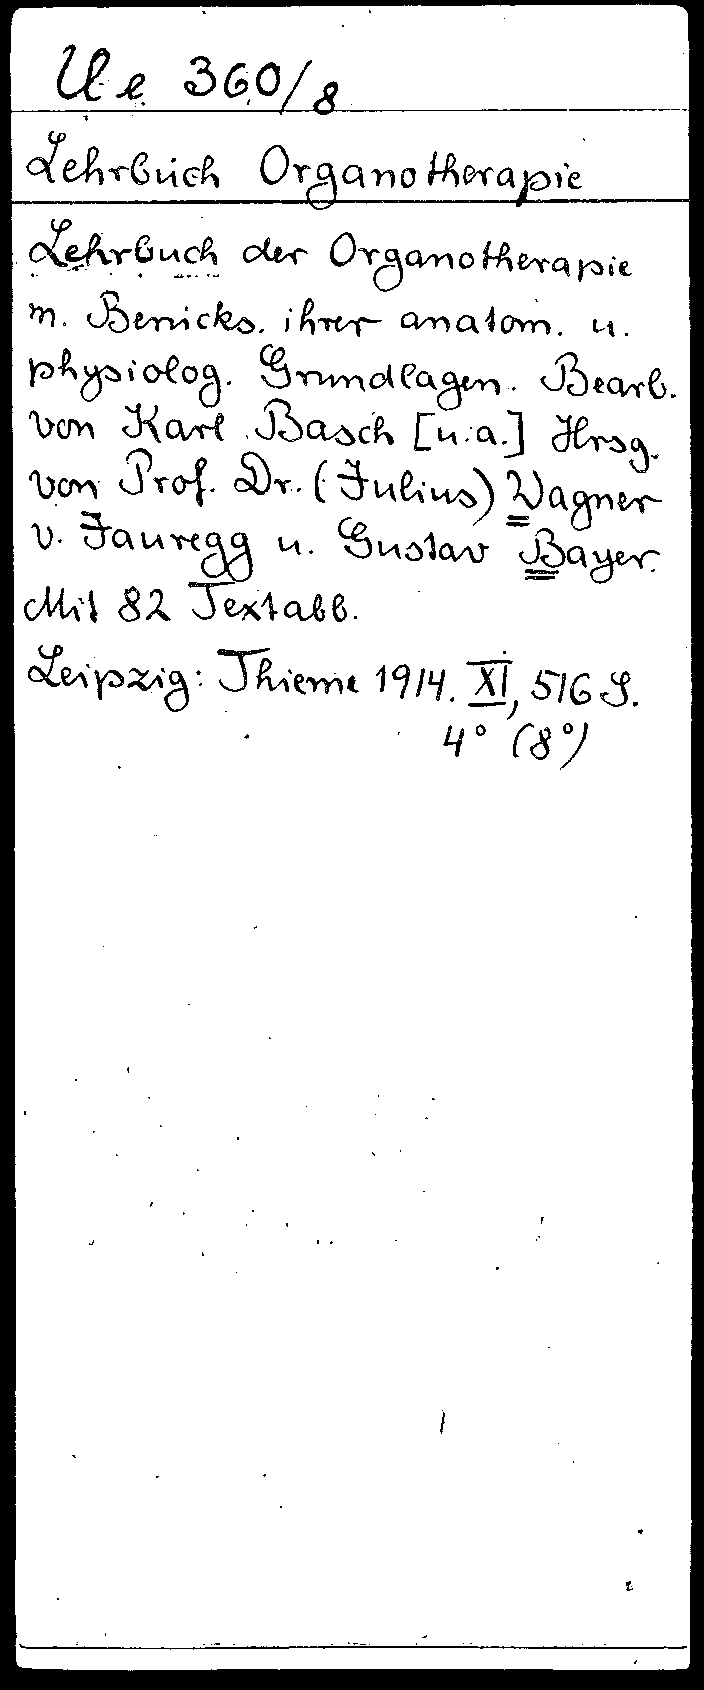 Ue 360/8
Lehrbuch Organotherapie
Lehrbuch der Organotherapie
m. Berücks. ihrer anatom. u.
physiolog. Grundlagen. Bearb.
von Karl Basch [u.a.] Hrsg.
von Prof. Dr. (Julius) Wagner
v. Jauregg u. Gustav Bayer.
Mit 82 Textabb.
Leipzig: Thieme 1914. XI, 516 S.
4° (8°)